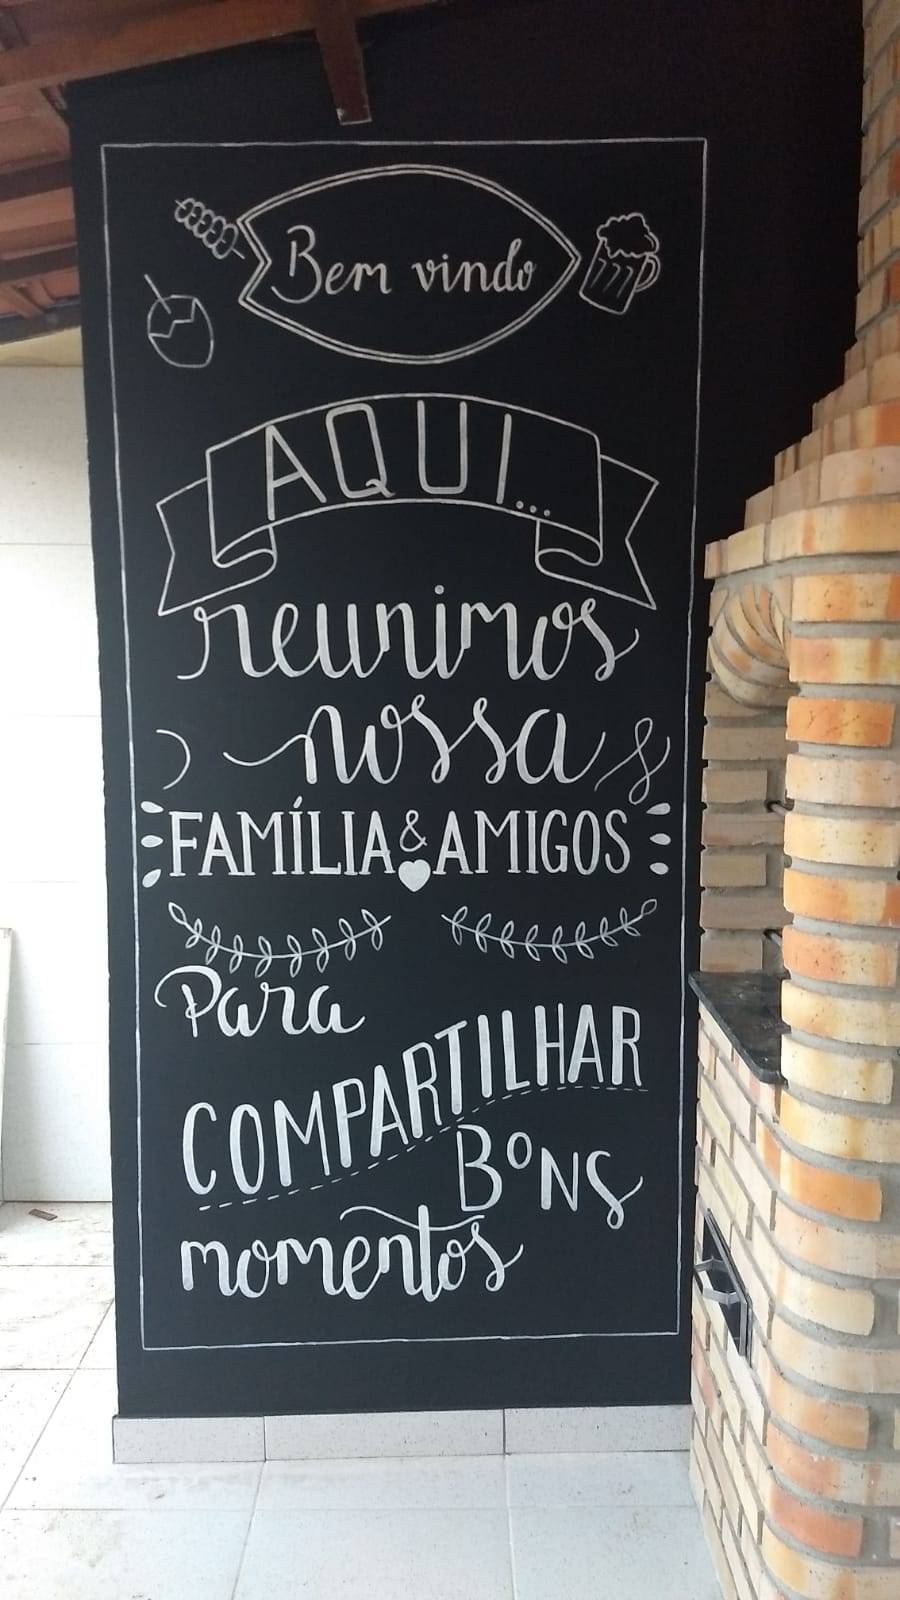 Bem vindo
AQUI...
reunimos
nossa
FAMÍLIA & AMIGOS
Para
COMPARTILHAR
BONS
momentos